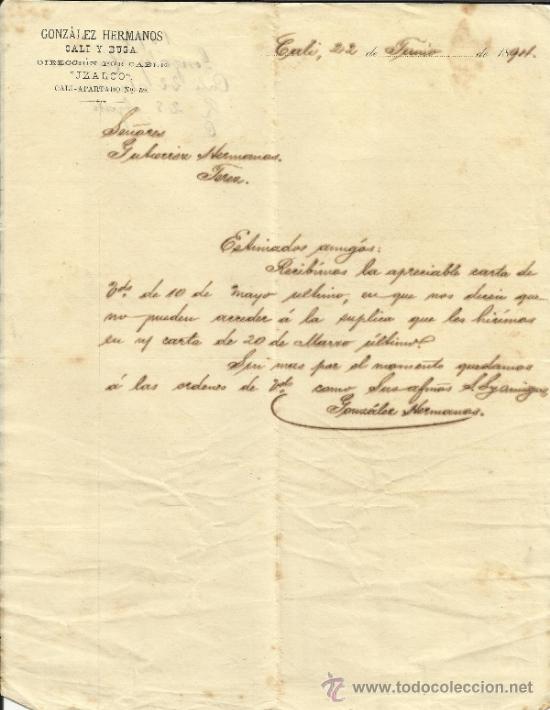 GONZÁLEZ HERMANOS
CALI Y BUGA
DIRECCIÓN POR CABLE
"JZALCO"
CALI-APARTADO No 59.
Cali, 22 de Junio de 1891.
Señores
Gutierrez Hermanos.
Jerez
Estimados amigós:
Recibimos la apreciable carta de
Vds. de 10 de Mayo ultimo, en que nos decin que
no pueden acceder á la suplica que les hicimos
en carta de 20 de Marzo último
Sin mas por el momento quedamos
á las ordenes de Vds como Sus afmos
González Hermanos.
todocoleccion
www.todocoleccion.net